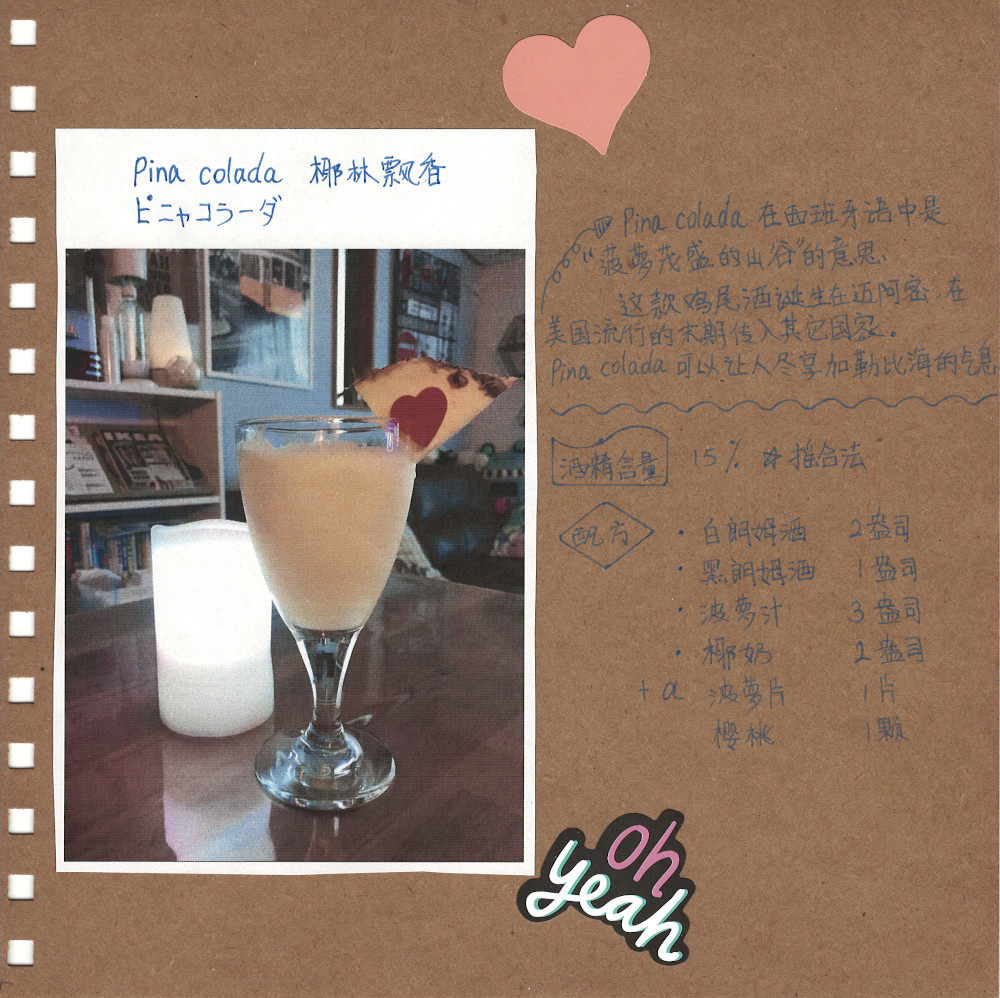 Pina colada 椰林飘香
ピニャコラーダ
Pina colada 在西班牙语中是
"菠萝茂盛的山谷"的意思.
这款鸡尾酒诞生在迈阿密,在
美国流行的末期传入其它国家.
Pina colada 可以让人尽享加勒比海的气息
酒精含量 15% 摇合法
配方 · 白朗姆酒 2盎司
· 黑朗姆酒 1盎司
· 波萝汁 3盎司
· 椰奶 2盎司
+α 波萝片 1片
樱桃 1颗
IKEA
oh
yeah